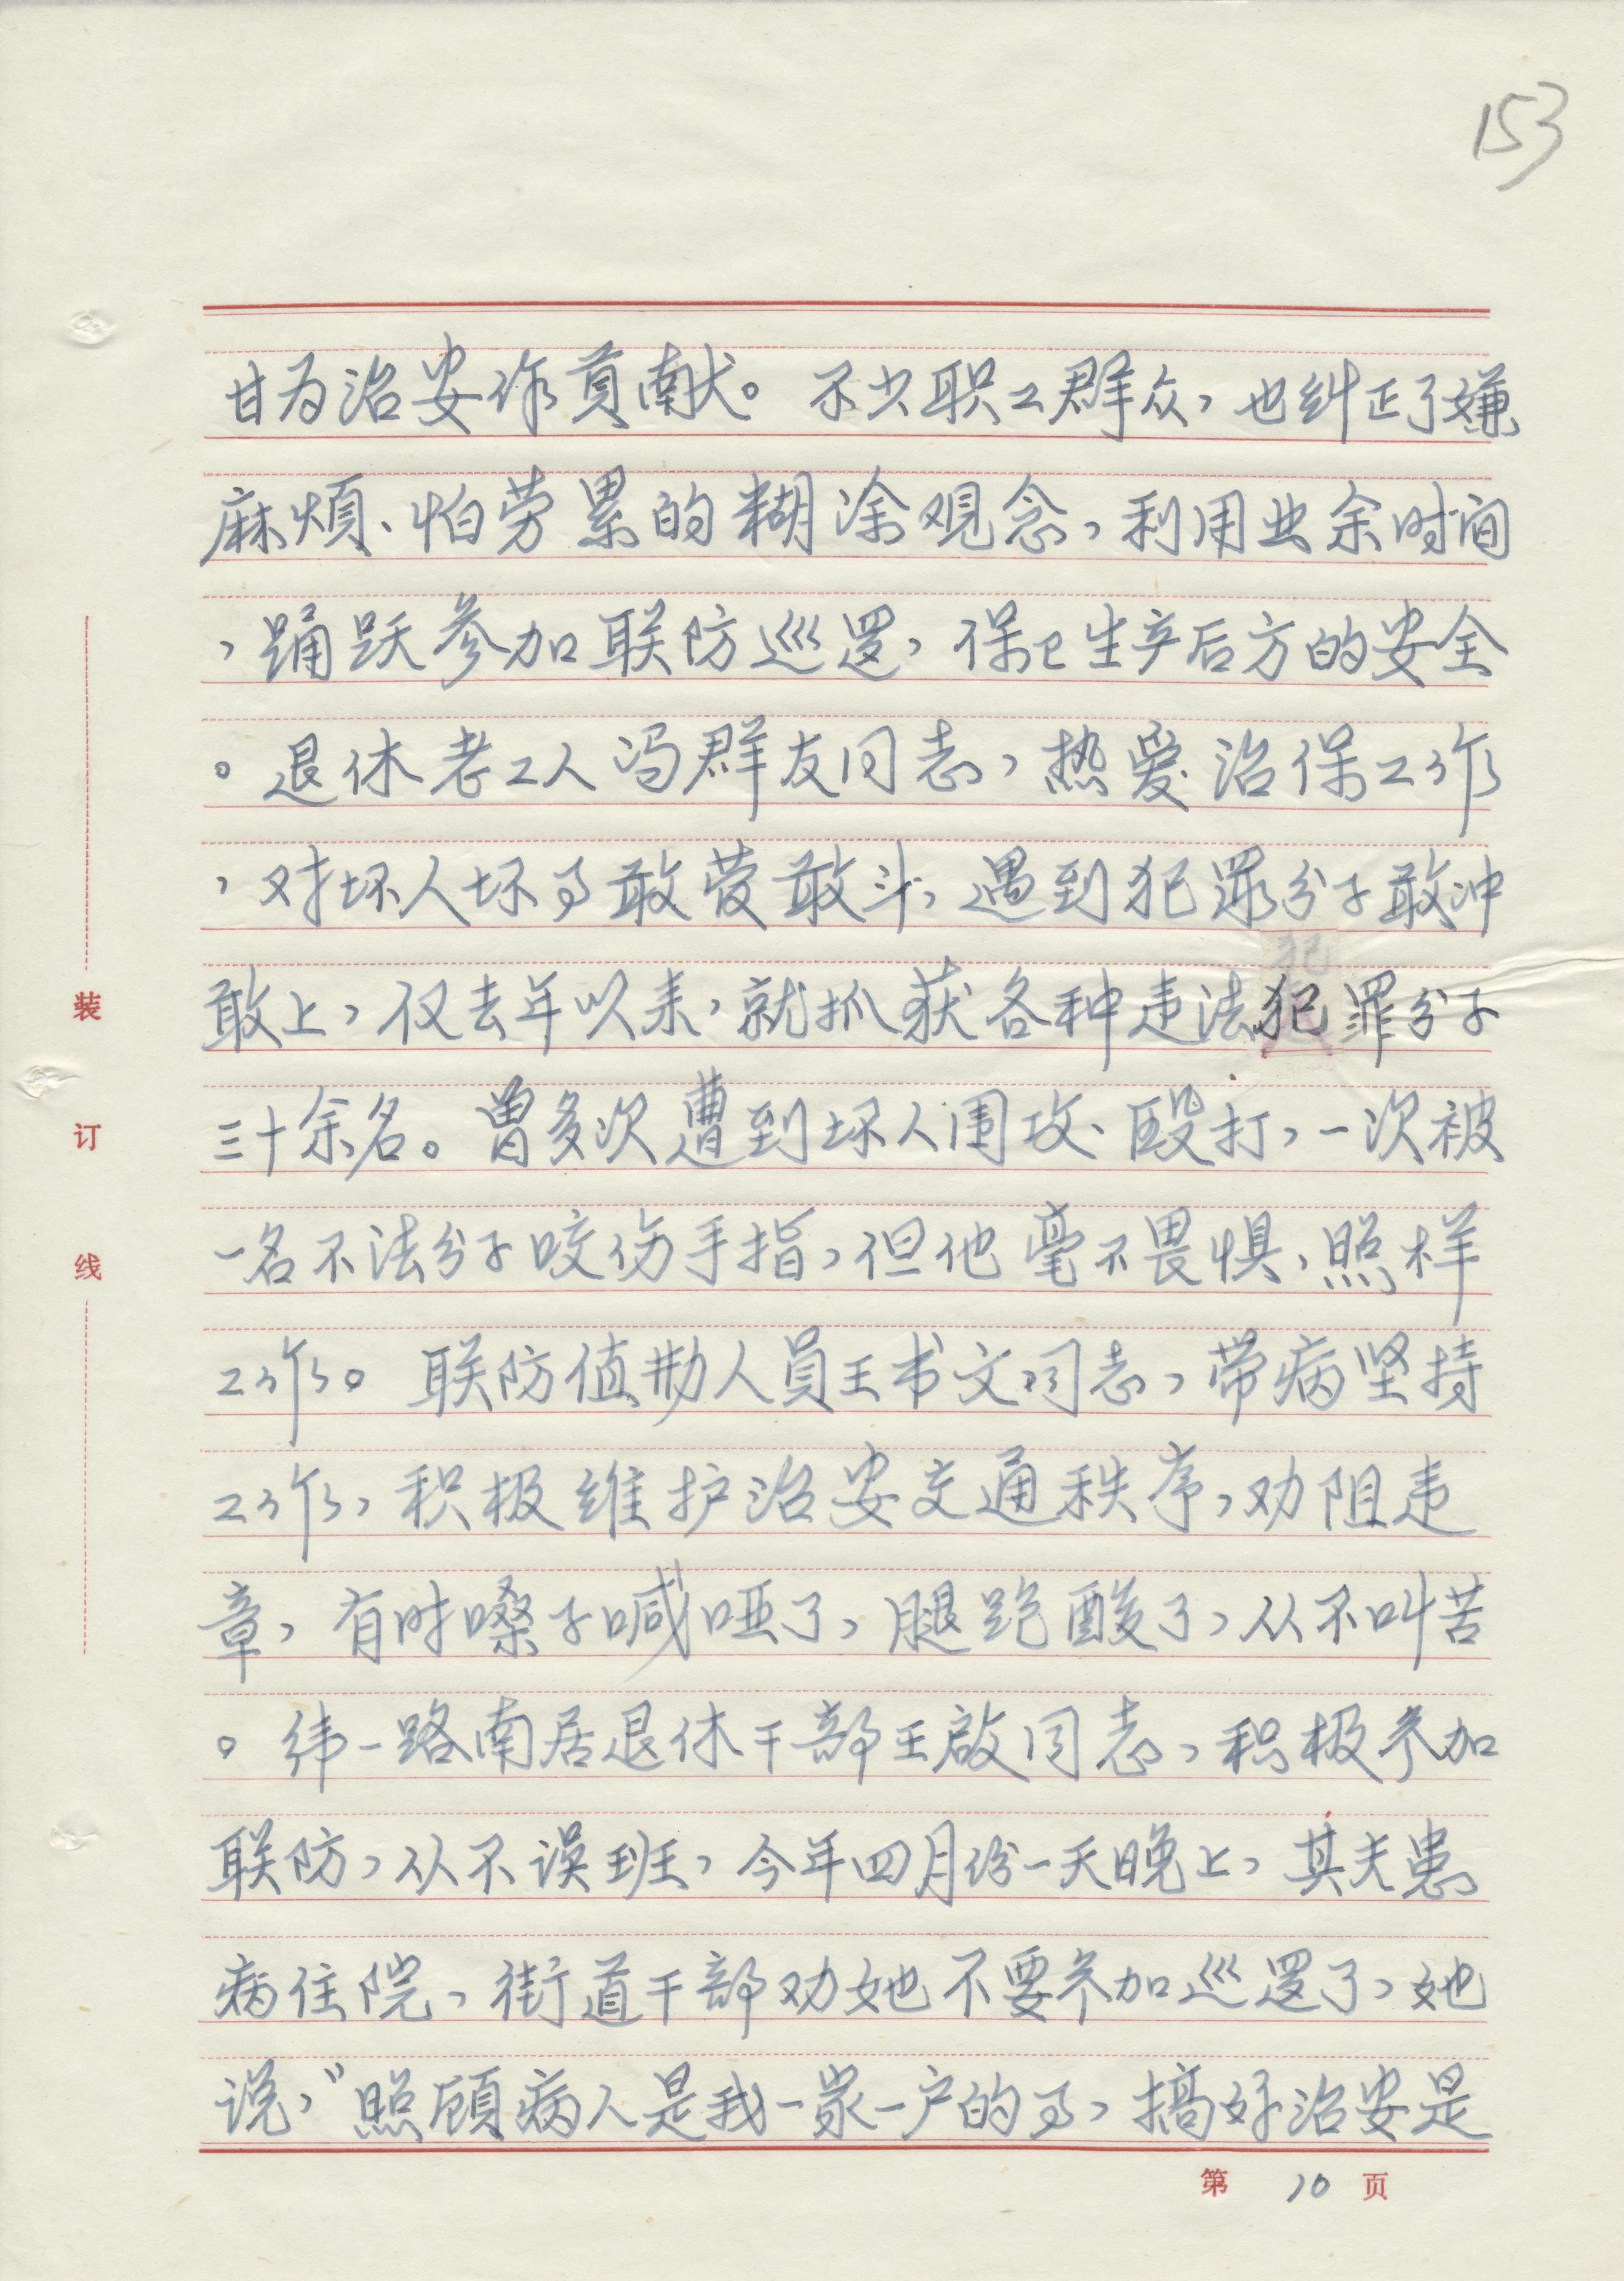 153
甘为治安作贡献。不少职工群众，也纠正了嫌
麻烦、怕劳累的糊涂观念，利用业余时间
，踊跃参加联防巡逻，保卫生产后方的安全
。退休老工人冯群友同志，热爱治保工作
，对坏人坏事敢管敢斗，遇到犯罪分子敢冲
敢上，仅去年以来，就抓获各种违法犯罪分子
三十余名。曾多次遭到坏人围攻、殴打，一次被
一名不法分子咬伤手指，但他毫不畏惧，照样
工作。联防值勤人员王书文同志，带病坚持
工作，积极维护治安交通秩序，劝阻违
章，有时嗓子喊哑了，腿跑酸了，从不叫苦
。纬一路南居退休干部王啟同志，积极参加
联防，从不误班，今年四月份一天晚上，其夫患
病住院，街道干部劝她不要参加巡逻了，她
说，"照顾病人是我一家一户的事，搞好治安是
第 10 页
装
订
线